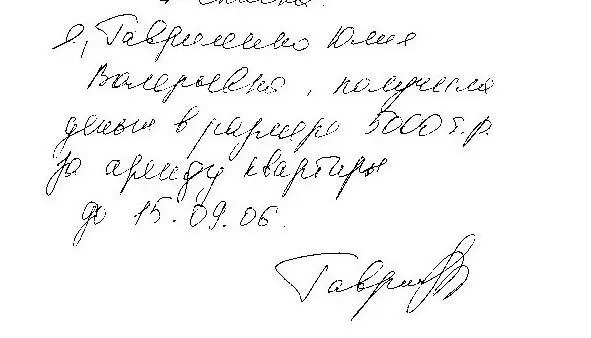 Я, Гавриленко Юлия
Валерьевна, получила
деньги в размере 5000 т.р.
за аренду квартиры
до 15.09.06.
Гаври